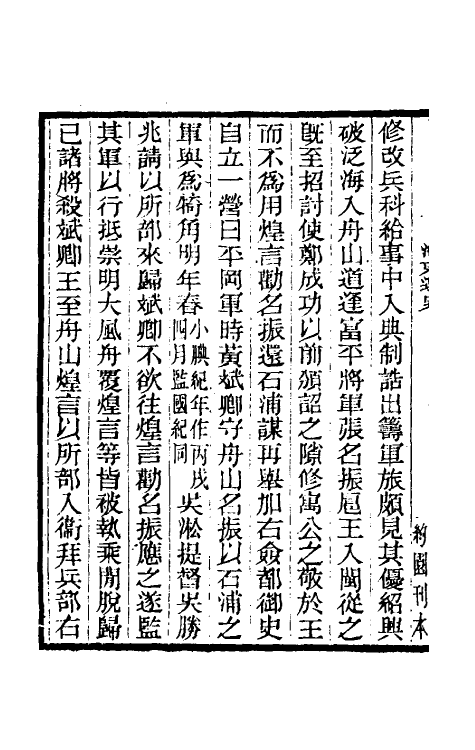 修改兵科給事中入典制誥出籌軍旅頗見其優紹興
破泛海入舟山道逢富平將軍張名振扈王入閩從之
旣至招討使鄭成功以前頒詔之隙修寓公之敬於王
而不爲用煌言勸名振還石浦謀再舉加右僉都御史
自立一營曰平岡軍時黃斌卿守舟山名振以石浦之
軍與爲犄角明年春小腆紀年作丙戌四月監國紀同吳淞提督吳勝
兆請以所部來歸斌卿不欲往煌言勸名振應之遂監
其軍以行抵崇明大風舟覆煌言等皆被執乘閒脫歸
已諸將殺斌卿王至舟山煌言以所部入衞拜兵部右
約園刊本